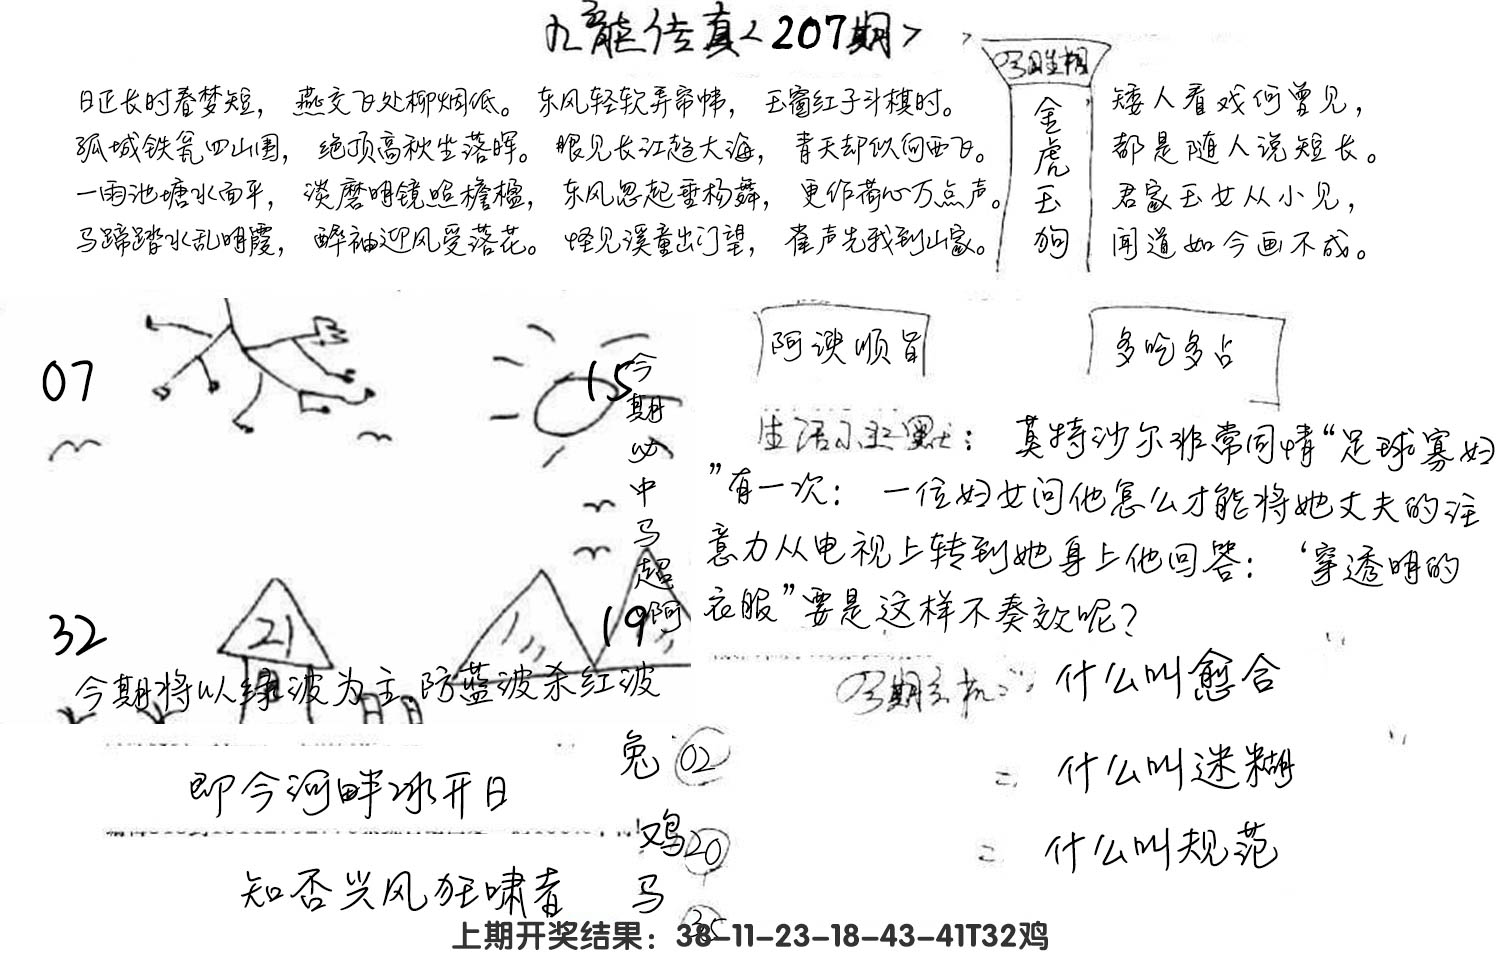 九龙传真<207期>
日正长时春梦短，燕交飞处柳烟低。东风轻软弄帘帏，玉窗红子斗棋时。
孤城铁瓮四山围，绝顶高秋坐落晖。眼见长江趋大海，青天却似向西飞。
一雨池塘水面平，淡磨明镜照檐楹，东风忽起垂杨舞，更作荷心万点声。
马蹄踏水乱明霞，醉袖迎风受落花。怪见溪童出门望，雀声先我到山家。
金虎玉狗
矮人看戏何曾见，
都是随人说短长。
君家玉女从小见，
闻道如今画不成。
07
15
今期必中马超啊
32
21
19
今期将以绿波为主防蓝波杀红波
阿谀顺旨
多吃多占
生活小幽默：莫特沙尔非常同情“足球寡妇
”有一次：一位妇女问他怎么才能将她丈夫的注
意力从电视上转到她身上他回答：‘穿透明的
衣服”要是这样不奏效呢？
什么叫愈合
什么叫迷糊
什么叫规范
即今河畔冰开日
知否兴风狂啸者
兔 02
鸡 20
马 35
上期开奖结果：38-11-23-18-43-41T32鸡